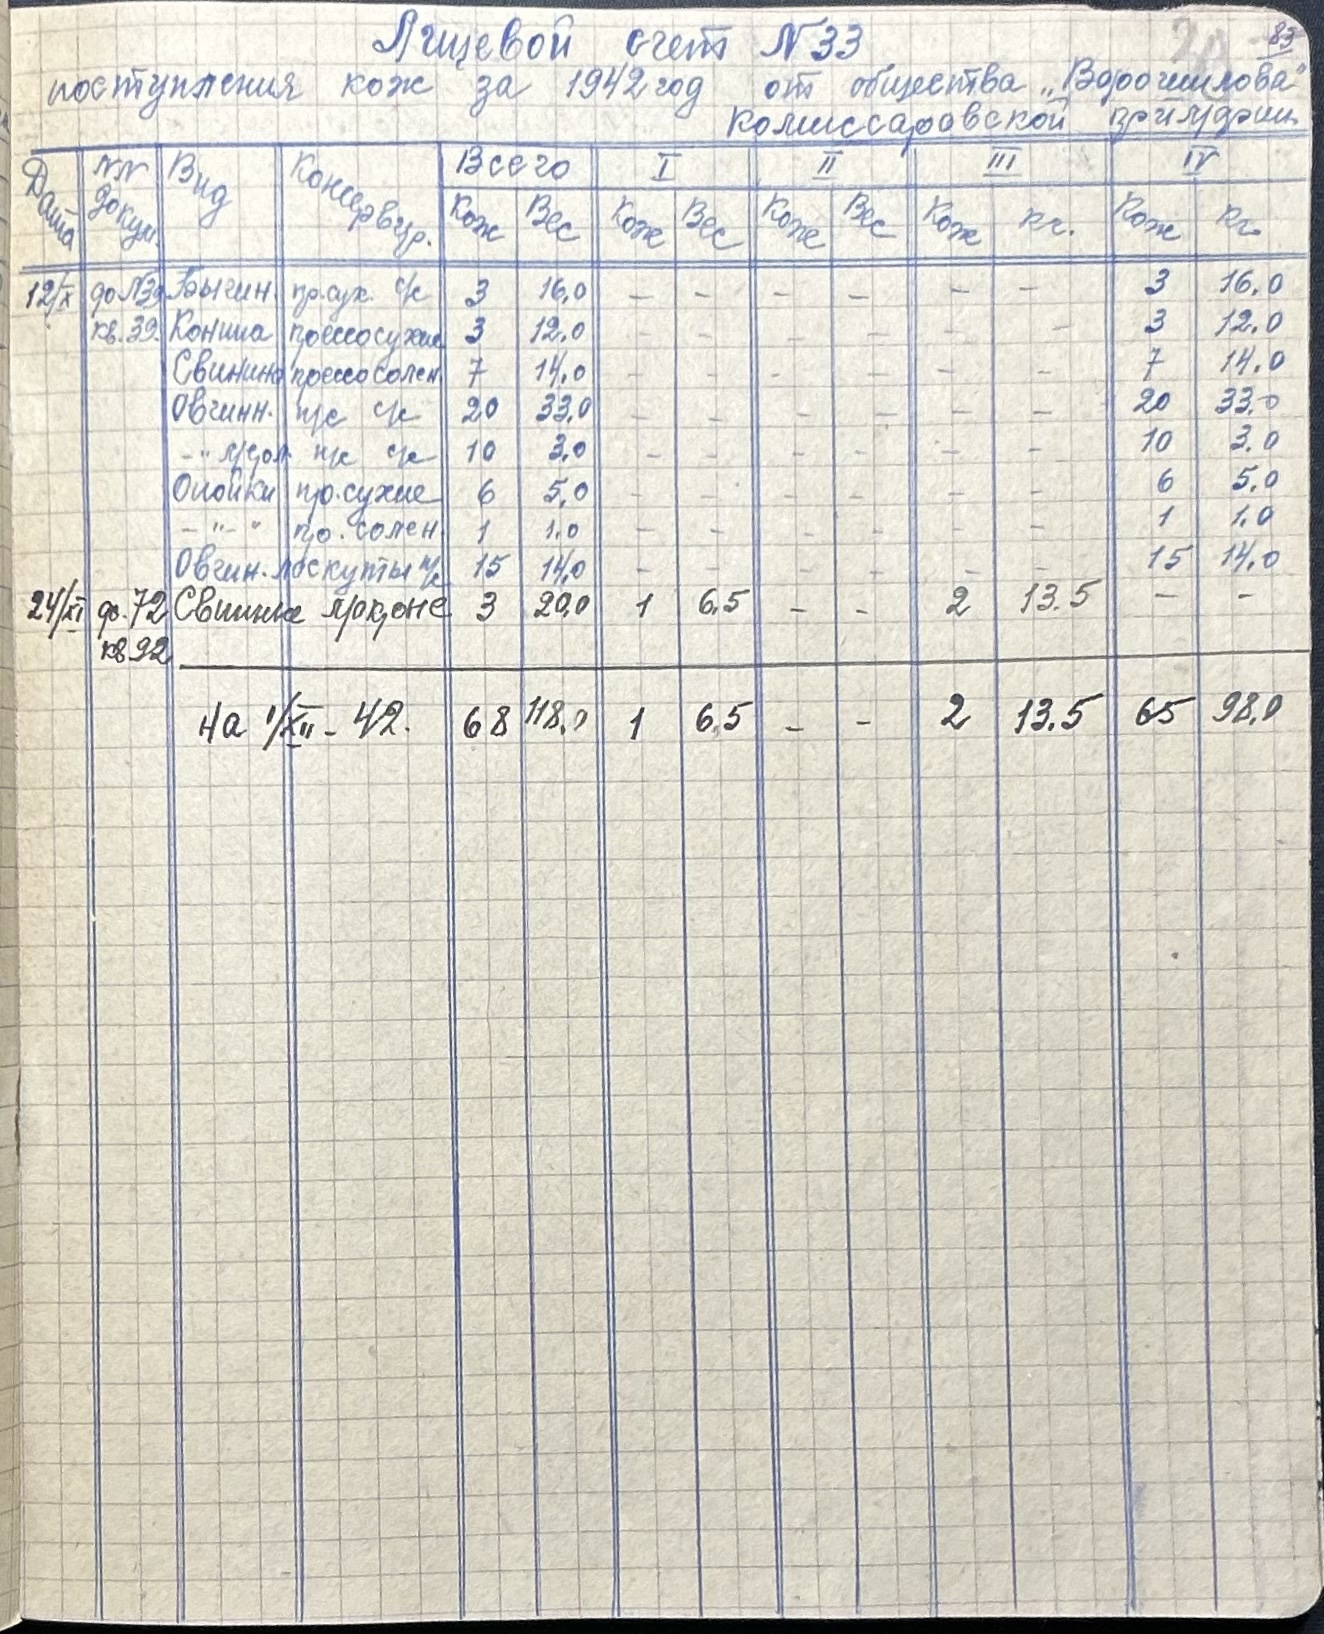 83
Лицевой счет N 33
поступления кож за 1942 год от общества „Ворошилова"
Комиссаровской
Дата NN докум. Вид Консервир. Всего I II III IV
Кож Вес Кож Вес Кож Вес Кож кг. Кож кг.
12/X до N39 Бычин. пр.сух. с/к 3 16,0 – – – – – – 3 16,0
кв. 39. Конина прессосухие 3 12,0 – – – – – – 3 12,0
Свинина прессосолен 7 14,0 – – – – – – 7 14,0
Овчинн. п/с с/к 20 33,0 – – – – – – 20 33,0
– " п/с с/к 10 3,0 – – – – – – 10 3,0
Опойки пр.сухие 6 5,0 – – – – – – 6 5,0
– " – " пр. солен. 1 1,0 – – – – – – 1 1,0
Овчин. лоскуты п/с 15 14,0 – – – – – – 15 14,0
24/XI до. 72 Свинина 3 20,0 1 6,5 – – 2 13.5 – –
кв 92
На 1/XII – 42. 68 118,0 1 6,5 – – 2 13.5 65 98,0